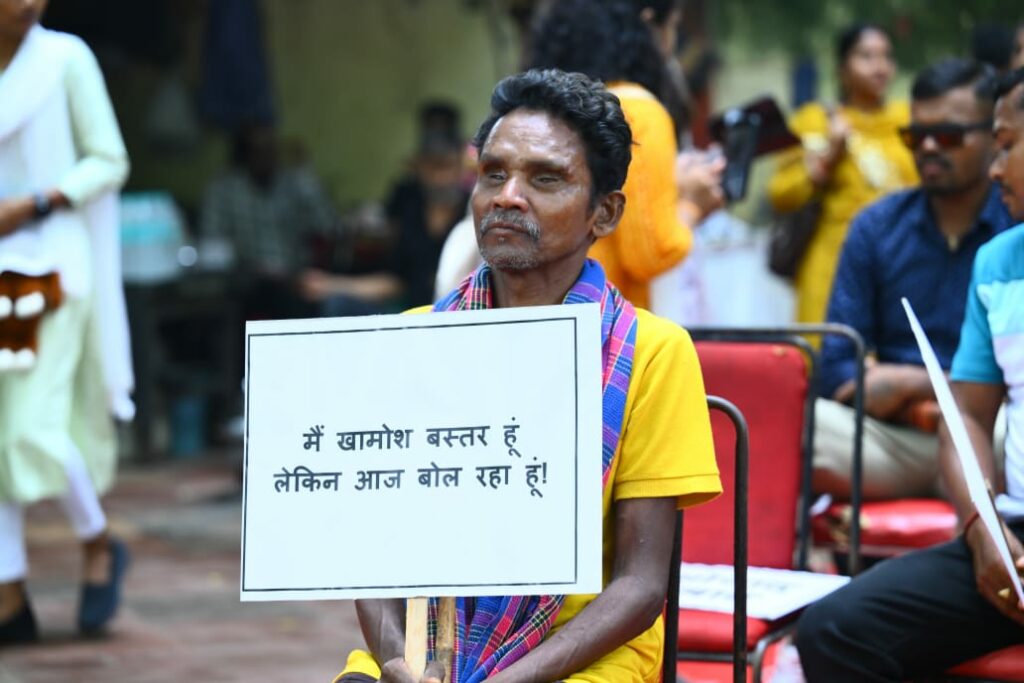 मैं खामोश बस्तर हूं
लेकिन आज बोल रहा हूं!